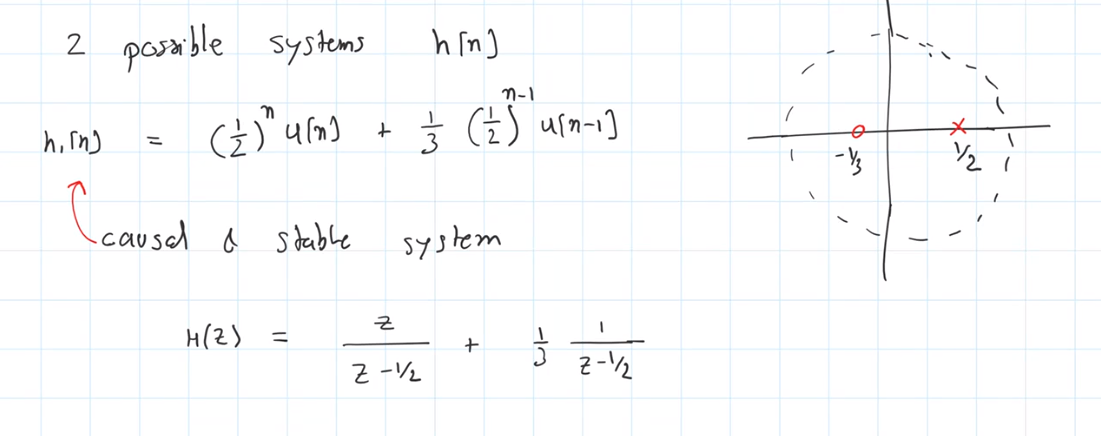 2 possible systems h[n]
h₁[n] = (1/2)ⁿ u[n] + 1/3 (1/2)ⁿ⁻¹ u[n-1]
-1/3 1/2
causal & stable system
H(z) = z/(z - 1/2) + 1/3 1/(z - 1/2)